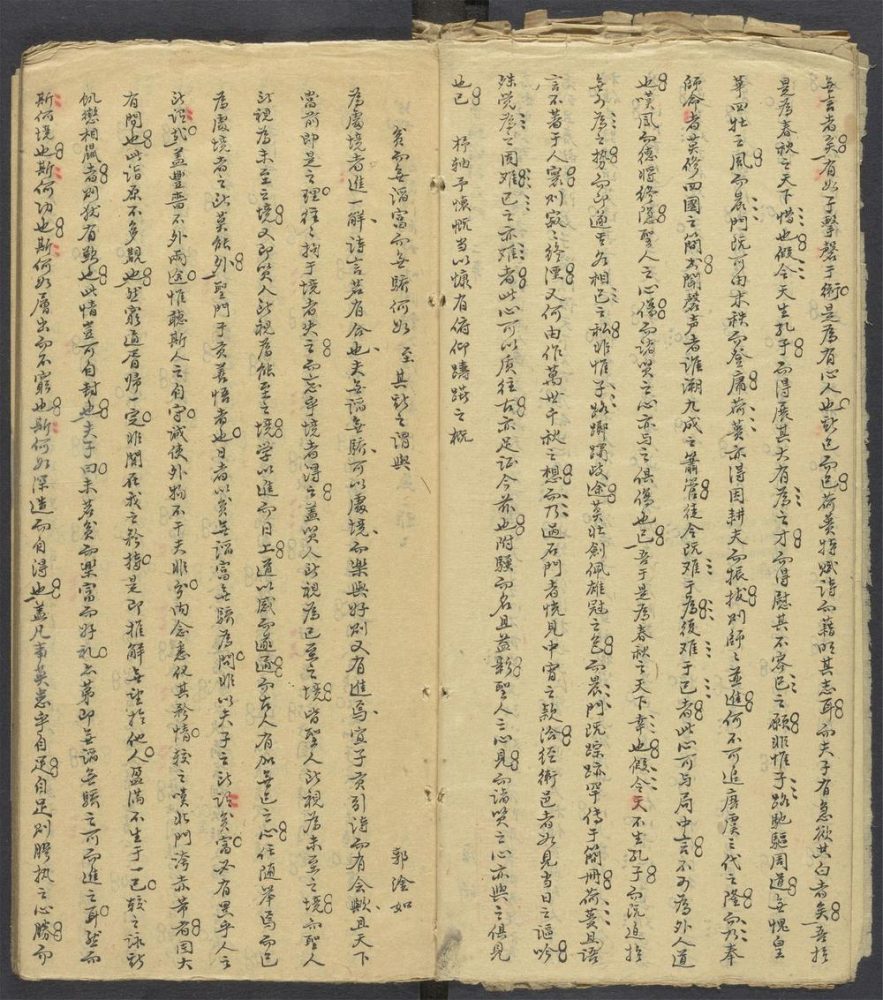 無言者矣有如子擊磬于衛是為有心人也歟已而已荷蕢特賦詩而藉明其志耳而夫子有急欲共白者矣吾於
是為春秋之天下惜也假令天生孔子而得展其大有為之才而得慰其不容已之願非惟子路馳驅周道無愧皇
華四牡之風而晨門既可由末秩而登庸荷蕢亦得因耕夫而振拔則師師並進何不可追唐虞三代之隆而乃奉
師命者莫修四國之簡書聞磬声者誰溯九成之簫管徒令既难于為復难于已者此心可与局中言不可為外人道
也嘆鳳而德將終隱聖人之心傷而諸賢之心亦与之俱傷也已吾于是為春秋之天下幸也假令天不生孔子而沉迫於
無可為之勢而即遁其各相已之私非惟子路躑躅岐途莫壯劍佩雄冠之色而晨門既踪跡罕傳于簡冊荷蕢且語
言不著于人寰則寂寂終湮又何由作萬世千秋之想而乃過石門者恍見中宵之款洽經衛邑者如見當日之謳吟
殊覺為之固难已之亦难者此心可以质往古亦足証今茲也附驥而名且益彰聖人之心見而諸賢之心亦與之俱見
也已 杼軸予懷慨当以慷有俯仰躊躇之概
貧而無諂富而無驕何如 至 其斯之謂與 郭淦如
為處境者進一解詩言若有合也夫無諂無驕可以處境而樂與好則又有進焉宜子貢引詩而有會歟且天下
當前即是之理往往拘于境者失之而忘乎境者得之蓋賢人所視為已至之境皆聖人所視為未至之境而聖人
所視為未至之境又即賢人所視為能至之境学以進而日上道以感而遂通而古人有加無已之心任随举焉而已
為處境者之所莫能外聖門子貢善悟者也日者以貧無諂富無驕為問非以夫子之所謂貧富必有異乎人之
所謂哉蓋豐嗇不外兩途惟聽斯人之自守誠使外物不干夫非分內念悉化其矜情較之嘆北門誇赤芾者固大
有間也此詣原不多覯也然窮通胥歸一定非關在我之矜持是即推解無望於他人盈滿不生于一己較之詠斯
飢戀相鼠者則猶有歉也此情豈可自封也夫子曰未若貧而樂富而好礼亦第即無諂無驕之可而進之耳然而
斯何境也斯何功也斯何如層出而不窮也斯何如深造而自得也蓋凡事莫患乎自足自足則膠执之心勝而